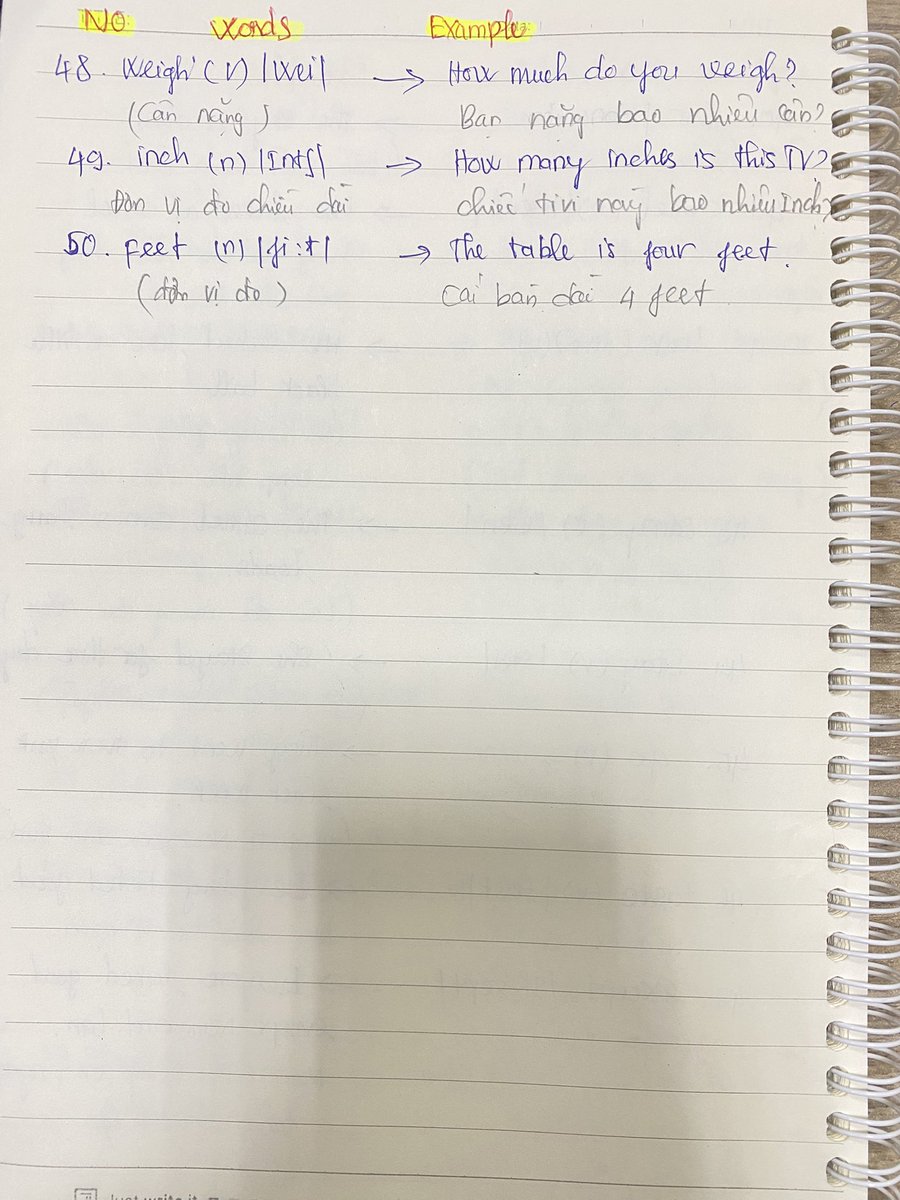 NO Words Example:
48. Weigh (v) |wei| → How much do you weigh?
(Cân nặng) Bạn nặng bao nhiêu cân?
49. inch (n) |Intʃ| → How many inches is this TV?
Đơn vị đo chiều dài chiếc tivi này bao nhiêu Inch?
50. Feet (n) |fi:t| → The table is four feet.
(đơn vị đo) Cái bàn dài 4 feet
Just write it